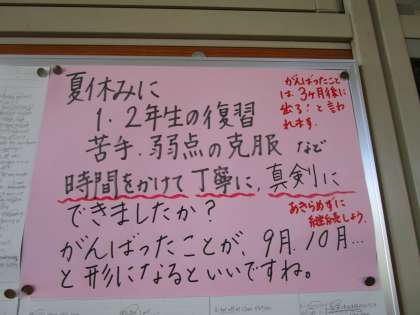 夏休みに
1・2年生の復習
苦手・弱点の克服 など
時間をかけて丁寧に、真剣に
できましたか？
がんばったことが、9月、10月…
と形になるといいですね。
がんばったこと
は3ヶ月後に
出る！と言わ
れます。
あきらめずに
継続しよう。